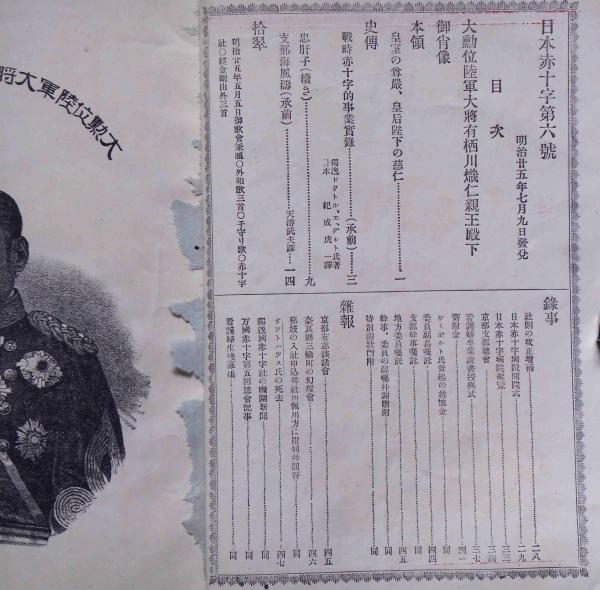 日本赤十字第六號
明治廿五年七月九日發兌
目次
大勳位陸軍大將有栖川熾仁親王殿下
御肖像
本領
皇室の尊嚴、皇后陛下の慈仁 一
史傳
戰時赤十字的事業實錄 (承前) 三
獨逸ドクトル、エ、グルト氏著
日本 紀成虎一譯
忠肝子(續き) 九
支那海風濤(承前) 天游武夫譯 一四
拾翠
明治廿五年五月五日御歌會兼題〇外和歌三首〇千守り歌〇赤十字
社〇經金剛山外三首
錄事
社則の改正增補 二八
日本赤十字病院開院式 二九
日本赤十字病院 三三
京都支部總會 三四
看護婦卒業證書授與式 三七
寄附金 四一
シーボルト氏發起の救恤金 同
委員副長囑託 四四
支部幹事囑託 同
地方委員囑託 四五
幹事、委員の 同
特別 同
雜報
京都有志談話會 四五
奈良縣三輪町の幻燈會 四六
茨城の入社申込 同
ナツトハウス氏の死去 四七
獨逸國赤十字社の機關新聞 同
万國赤十字第五回總會記事 同
看護婦生 同
大勲位陸軍大將